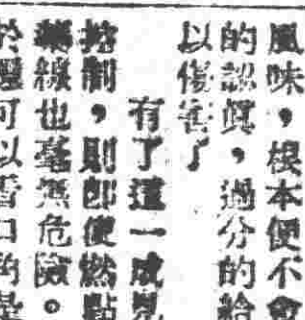 風味,根本便不會
的認眞,過分的給
以傷害了
有了這一成見
控制,則卽使燃點
藥線也毫無危險。
可以